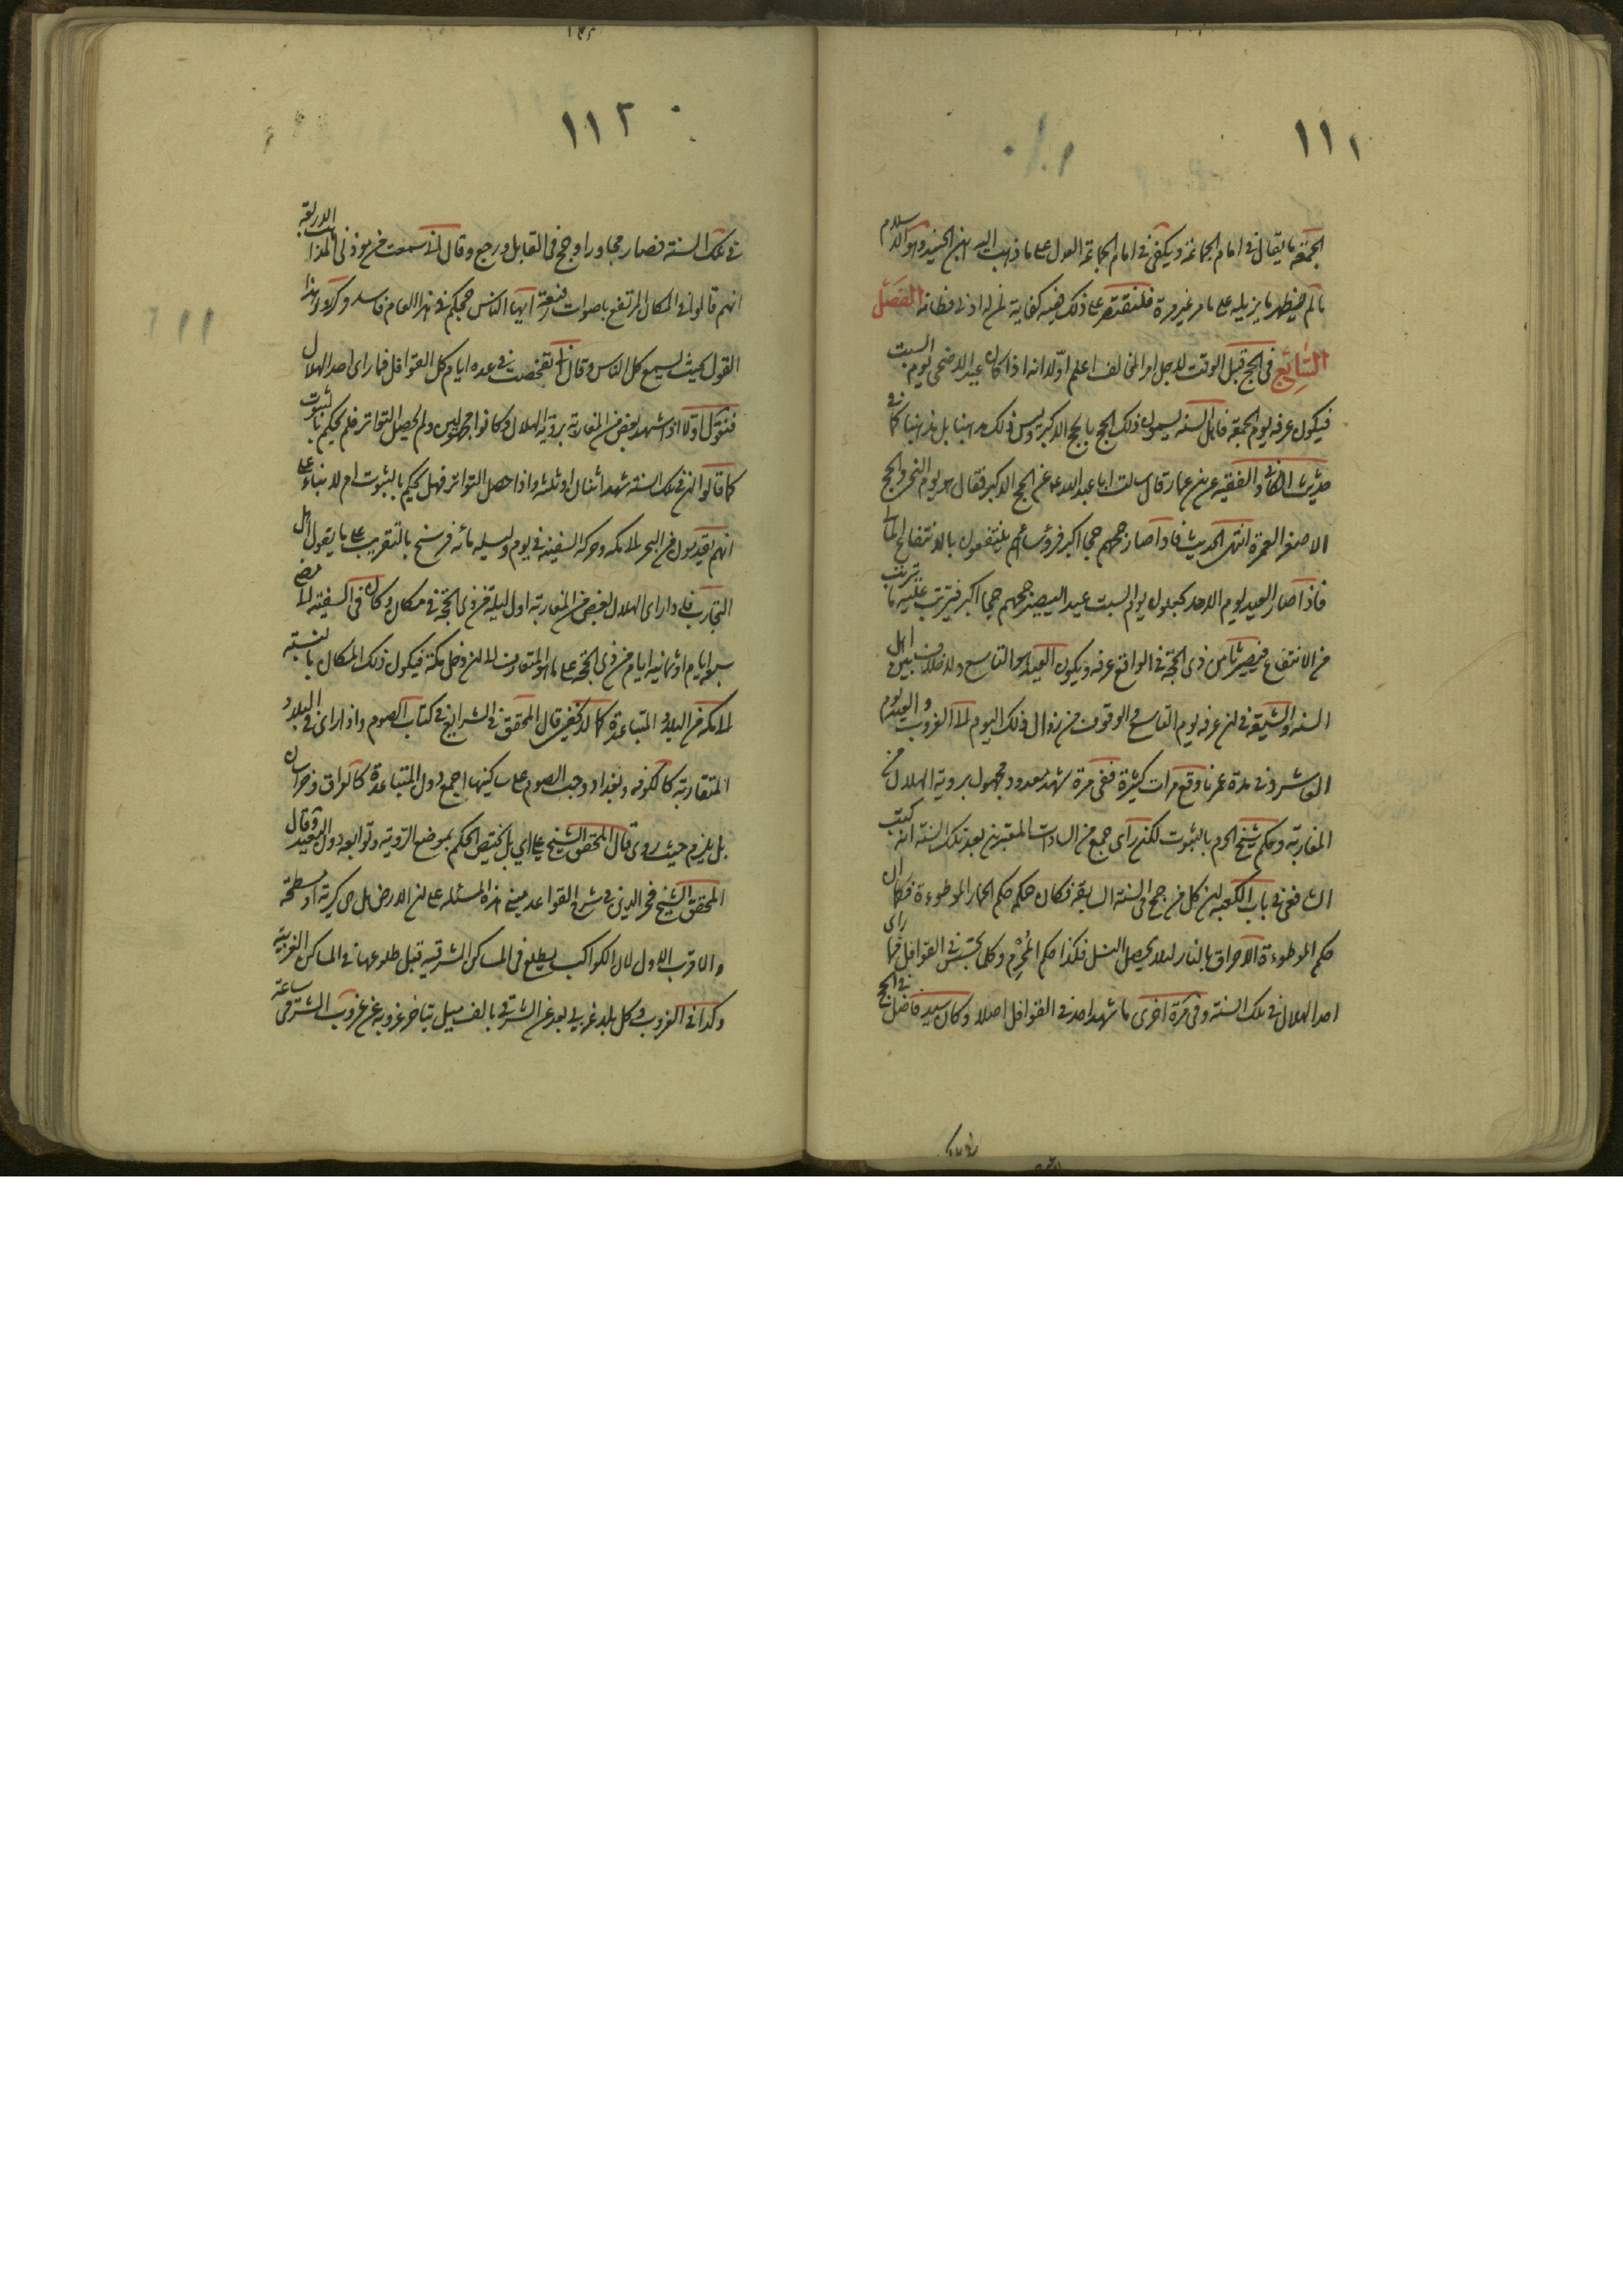 ١١١
الجمعة ما يقال في امام الجماعة ويكفي في امام الجماعة العدل على ما ذهب اليه ابن الجنيد وهو الاسلام
ما لم يظهر ما يزيله على ما مر غير مرة فلنقتصر على ذلك ففيه كفاية لمن له اذن فطانة الفصل
السابع في الحج قبل الوقت لاجل امر المخالف اعلم اولا انه اذا كان عيد الاضحى يوم السبت
فيكون عرفه يوم الجمعة فاهل السنه يسمون ذلك الحج بالحج الاكبر وليس ذلك مذهبنا بل مذهبنا كما في
حديث الكافي والفقيه عن بن عمار قال سالت ابا عبد الله ع عن الحج الاكبر فقال هو يوم النحر والحج
الاصغر العمرة انتهى الحديث فاذا صار حجهم حجا اكبر فرؤساءهم ينتفعون بالانتفاع المالي
فاذا صار العيد يوم الاحد يجعلون يوم السبت عيدا ليصير حجهم حجا اكبر فيترتب عليه ما ترتب
من الانتفاع فيصير ثامن ذى الحجة في الواقع عرفه ويكون العيد هو التاسع ولا خلاف بين اهل
السنه والشيعة في ان عرفه يوم التاسع والوقوف من زوال ذلك اليوم الى الغروب والعيد يوم
العاشر وفي مدة عمرنا وقع مرات كثيرة ففي مرة شهد معدود مجهول بروية الهلال من
المغاربة وحكم شيخ الحرم بالثبوت لكن راى جمع من السادات المعتبرين بعد تلك السنة انه كتب
الشافعي في باب الكعبه ان كل من حج في السنة السابقه فكان حكمه حكم الحمار الموطوءة فكما ان
حكم الموطوءة الاحراق بالنار لئلا يحصل النسل فكذا حكم المحرم وكلما تجسس في القوافل فما راى
احد الهلال في تلك السنة وفي مرة اخرى ما شهد احد في القوافل اصلا وكان سيد فاضل في الحج
١١٢
في تلك السنة فصار مجاورا وحج في القابل ورجع وقال اني سمعت من موذني المذاهب الاربعة
انهم قالوا في المكان المرتفع باصوات رفيعة ايها الناس حجكم في هذا العام فاسد وكرروا هذا
القول بحيث يسمع كل الناس وقال انا تفحصت في عده ايام كل القوافل فما راى احد الهلال
فنقول اولا اذا شهد بعض من المغاربة بروية الهلال وكانوا مجهولين ولم يحصل التواتر فلم يحكم بالثبوت
كما قالوا ان في تلك السنة شهد اثنان او ثلثه واذا حصل التواتر فهل يحكم بالثبوت ام لا بناء على
انهم يقدمون من البحر الى مكه وحركه السفينه في يوم وليله مائه فرسخ بالتقريب على ما يقول اهل
التجارب فاذا راى الهلال بعض من المغاربة اول ليلة من ذى الحجة في مكان وكان في السفينه الى مضى
سبعة ايام او ثمانية ايام من ذى الحجة على ما هو المتعارف الى ان دخل مكة فيكون ذلك المكان بالنسبة
الى مكه من البلاد المتباعدة كما لا يخفى قال المحقق في الشرايع في كتاب الصوم واذا راى في البلاد
المتقاربة كالكوفه وبغداد وجب الصوم على ساكنيها اجمع دون المتباعدة كالعراق وخراسان
بل يلزم حيث روى قال المحقق الشيخ على اي بل يختص الحكم بموضع الروية وتوابعه دون البعيد وقال
المحقق الشيخ فخر الدين في شرح القواعد مبنى هذه المسئله على ان الارض هل هي كرية او مسطحة
والاقرب الاول لان الكواكب يطلع في المساكن الشرقيه قبل طلوعها في المساكن الغربية
وكذا في الغروب وكل بلد غربي بعد عن الشرقي بالف ميل يتاخر غروبه عن غروب الشرقي ساعة